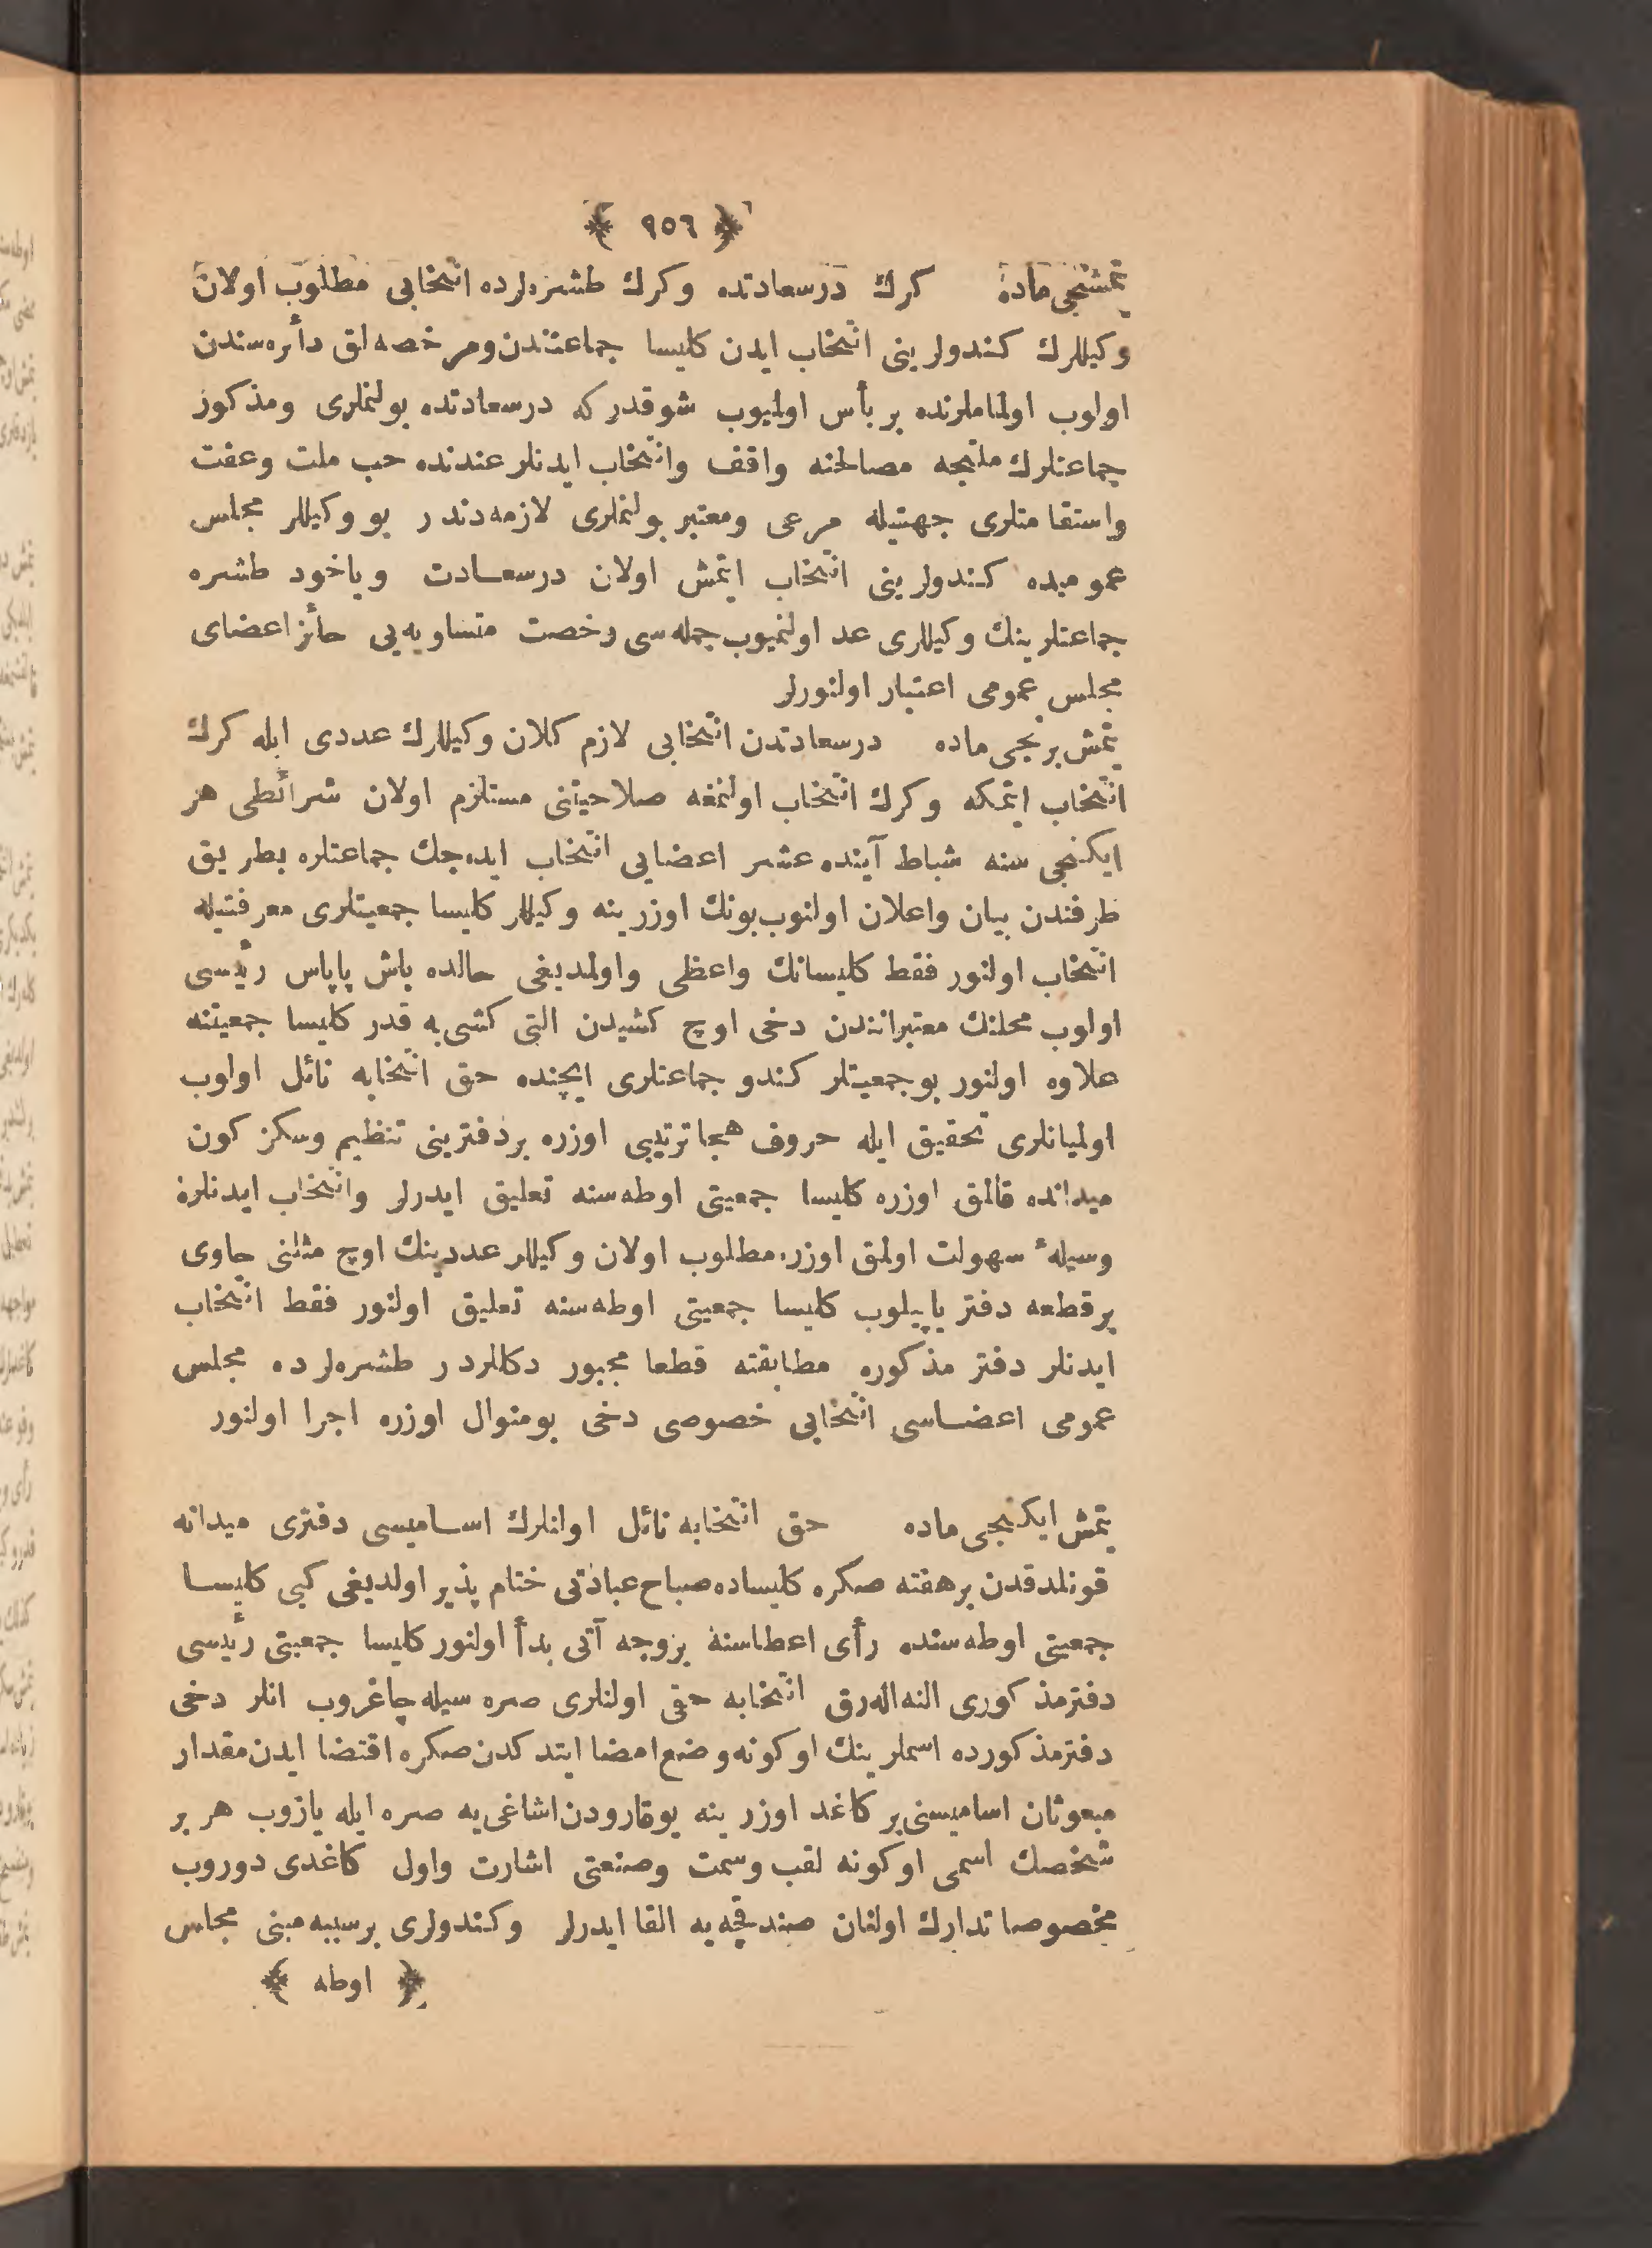 ﴿ ٩٥٦ ﴾
یتمشنجی ماده کرك درسعادتده وکرك طشره‌لرده انتخابی مطلوب اولان
وکیللرك کندولرینی انتخاب ایدن کلیسا جماعتندن ومرخصه‌لق دائره‌سندن
اولوب اولماملرنده بر بأس اولمیوب شوقدرکه درسعادتده بولنملری ومذکور
جماعتلرك ملتجه مصالحنه واقف وانتخاب ایدنلر عندنده حب ملت وعفت
واستقامتلری جهتیله مرعی ومعتبر بولنملری لازمه‌دندر بو وکیللر مجلس
عمومیده کندولرینی انتخاب ایتمش اولان درسعادت ویاخود طشره
جماعتلرینك وکیللری عد اولنمیوب جمله‌سی رخصت متساویه‌یی حائز اعضای
مجلس عمومی اعتبار اولنورلر
یتمش برنجی ماده درسعادتدن انتخابی لازم کلان وکیللرك عددی ایله کرك
انتخاب ایتمکه وکرك انتخاب اولنمغه صلاحیتنی مستلزم اولان شرائطی هر
ایکنجی سنه شباط آینده عشر اعضایی انتخاب ایده‌جك جماعتلره بطریق
طرفندن بیان واعلان اولنوب بونك اوزرینه وکیللر کلیسا جمعیتلری معرفتیله
انتخاب اولنور فقط کلیسانك واعظی واولمدیغی حالده باش پاپاس رئیسی
اولوب محلنك معتبرانندن دخی اوچ کشیدن التی کشی‌یه قدر کلیسا جمعیتنه
علاوه اولنور بو جمعیتلر کندو جماعتلری ایچنده حق انتخابه نائل اولوب
اولمیانلری تحقیق ایله حروف هجا ترتیبی اوزره بر دفترینی تنظیم وسکز کون
میدانده قالمق اوزره کلیسا جمعیتی اوطه‌سنه تعلیق ایدرلر وانتخاب ایدنلره
وسیلهٔ سهولت اولمق اوزره مطلوب اولان وکیللر عددینك اوچ مثلنی حاوی
بر قطعه دفتر یاپیلوب کلیسا جمعیتی اوطه‌سنه تعلیق اولنور فقط انتخاب
ایدنلر دفتر مذکوره مطابقته قطعا مجبور دکللردر طشره‌لرده مجلس
عمومی اعضاسی انتخابی خصوصی دخی بومنوال اوزره اجرا اولنور
یتمش ایکنجی ماده حق انتخابه نائل اولانلرك اسامیسی دفتری میدانه
قونلدقدن بر هفته صکره کلیساده صباح عبادتی ختام پذیر اولدیغی کبی کلیسا
جمعیتی اوطه‌سنده رأی اعطاسنه بروجه آتی بدأ اولنور کلیسا جمعیتی رئیسی
دفتر مذکوری النه اله‌رق انتخابه حقی اولنلری صره‌سیله چاغروب انلر دخی
دفتر مذکورده اسملرینك اوکونه وضع امضا ایتدکدن صکره اقتضا ایدن مقدار
مبعوثان اسامیسنی بر کاغد اوزرینه یوقارودن اشاغی‌یه صره ایله یازوب هر بر
شخصك اسمی اوکونه لقب وسمت وصنعتی اشارت واول کاغدی دوروب
مخصوصا تدارك اولنان صندقچه‌یه القا ایدرلر وکندولری بر سببه مبنی مجلس
﴿ اوطه ﴾